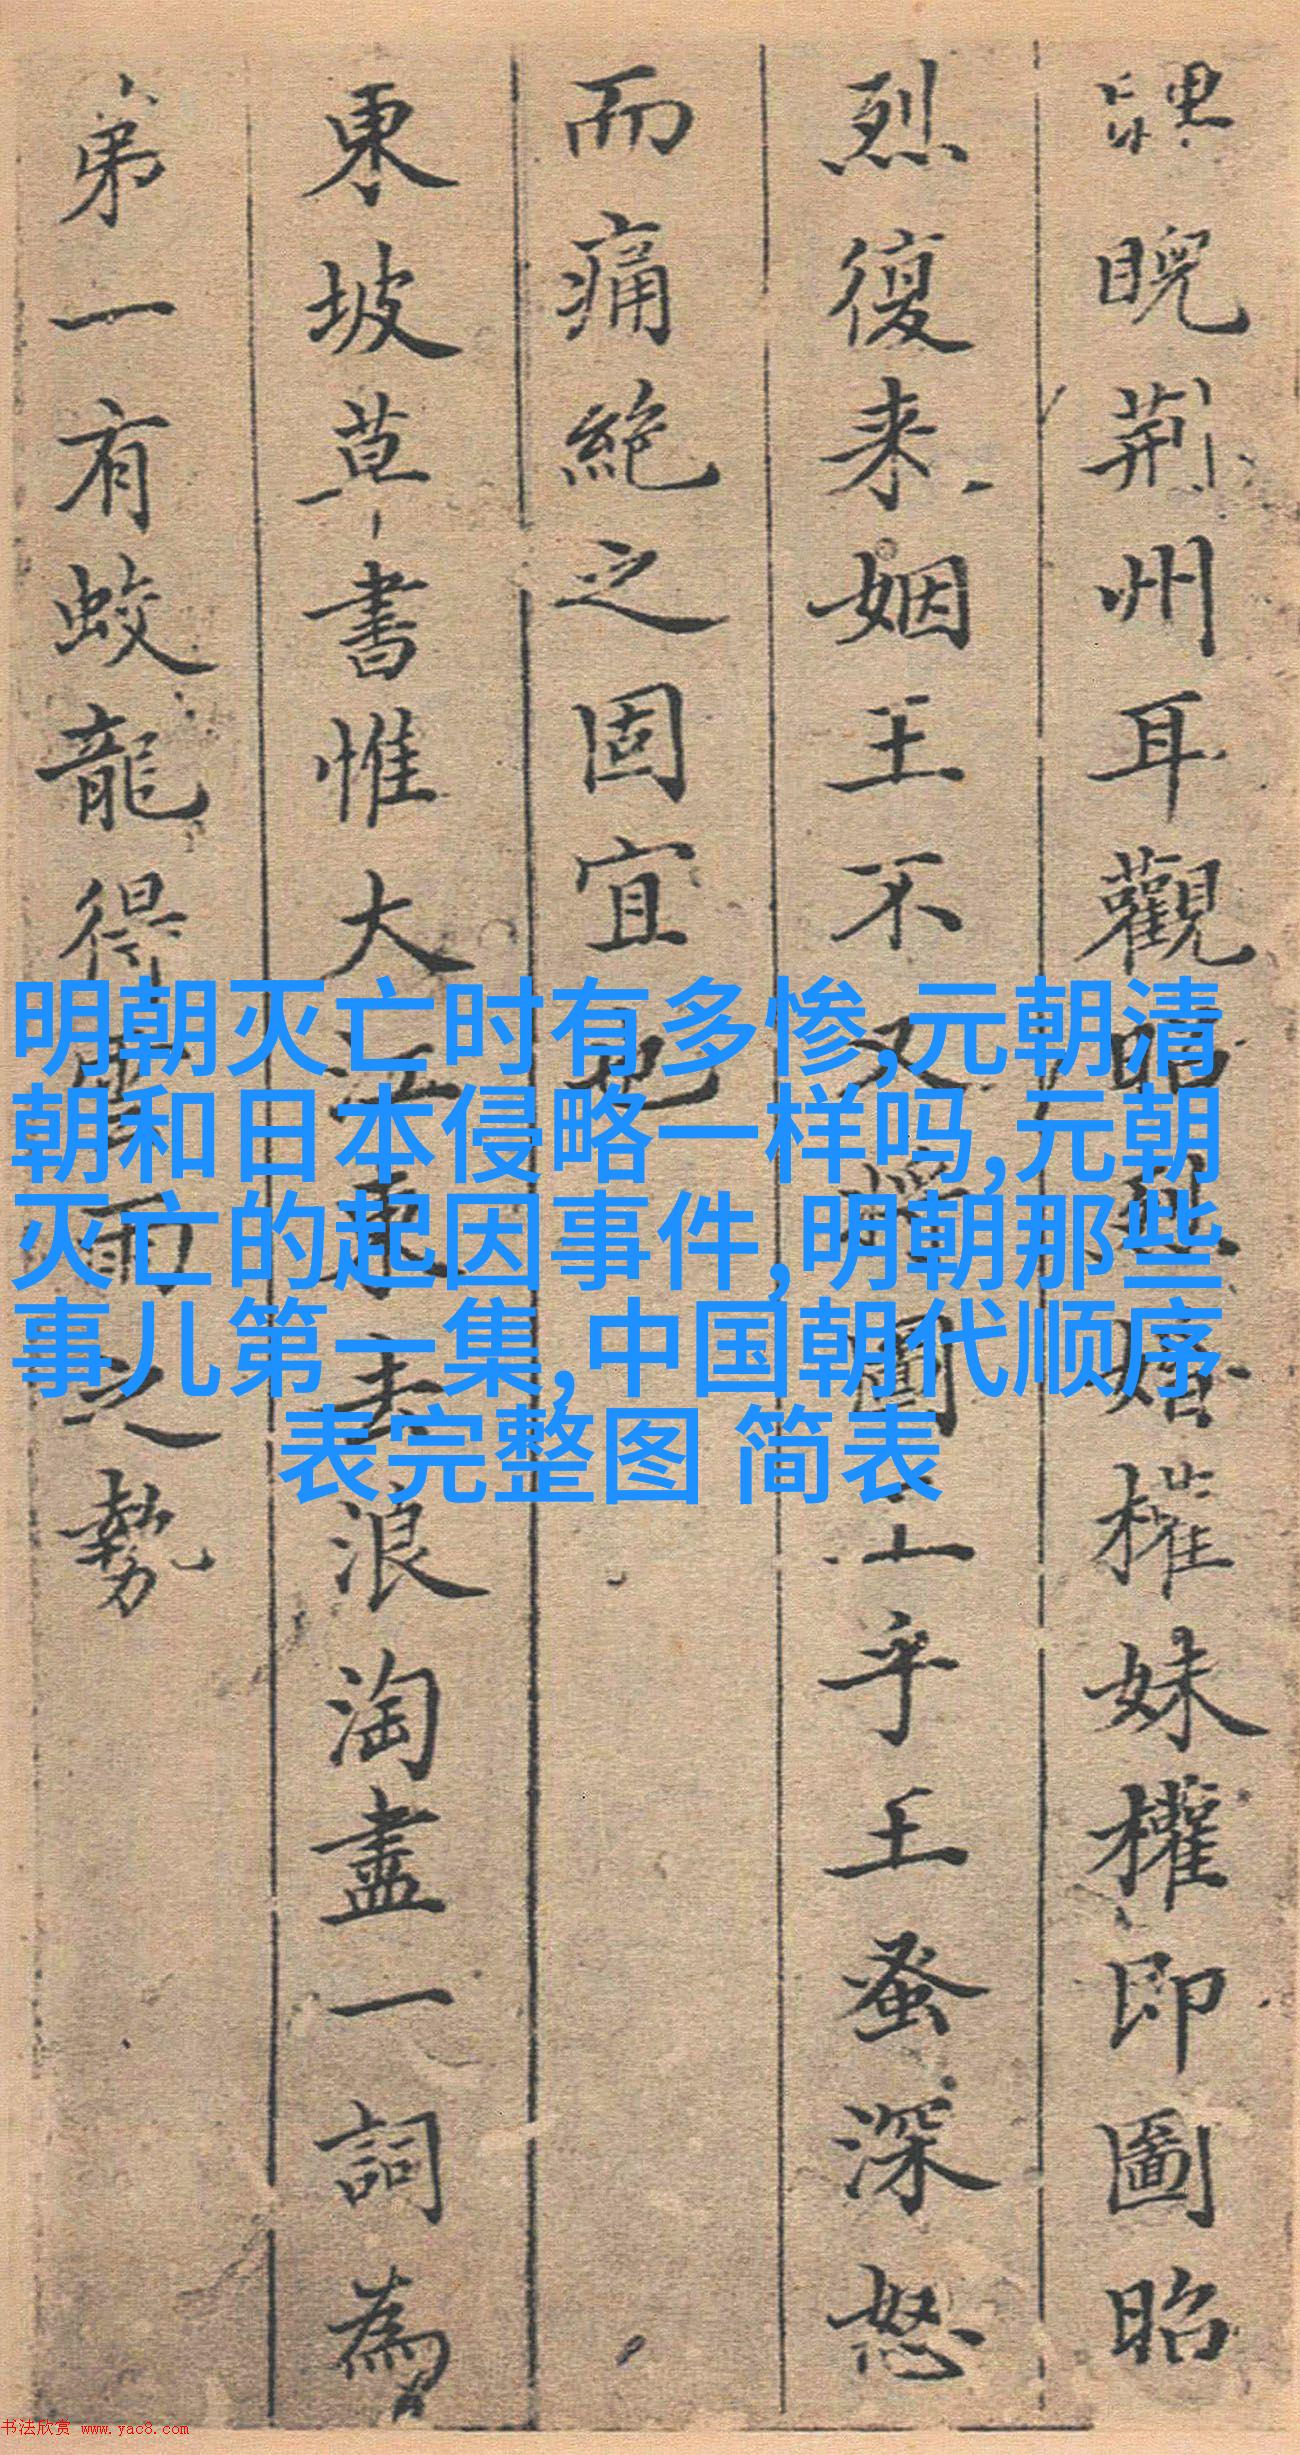 睨荊州耳觀昭烈婚權妹權即圖昭
烈復来姻王不又㩀圖王乎王蚤深怒
而痛絶之固宜也
東坡草書惟大江東去浪淘盡一詞為
弟一有蛟龍得雲雨之勢
明朝灭亡时有多惨,元朝清
朝和日本侵略一样吗,元朝
灭亡的起因事件,明朝那些
事儿第一集,中国朝代顺序
表完整图 简表
书法欣赏 www.yac8.com